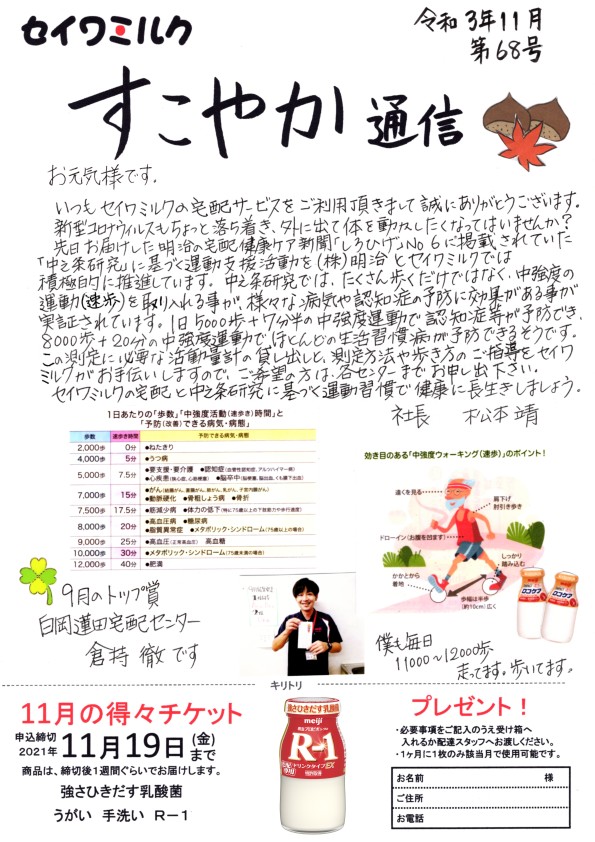 セイワミルク
令和3年11月
第68号
すこやか通信
お元気様です。
いつもセイワミルクの宅配サービスをご利用頂きまして誠にありがとうございます。
新型コロナウイルスもちょっと落ち着き、外に出て体を動かしたくなってはいませんか?
先日お届けした明治の宅配健康ケア新聞「しろひげ」No6に掲載されていた
「中之条研究」に基づく運動支援活動を(株)明治とセイワミルクでは
積極的に推進しています。中之条研究では、たくさん歩くだけではなく、中強度の
運動(速歩)を取り入れる事が、様々な病気や認知症の予防に効果がある事が
実証されています。1日5000歩+7分半の中強度運動で認知症等が予防でき、
8000歩+20分の中強度運動でほとんどの生活習慣病が予防できるそうです。
この測定に必要な活動量計の貸し出しと、測定方法や歩き方のご指導をセイワ
ミルクがお手伝いしますので、ご希望の方は、各センターまでお申し出下さい。
セイワミルクの宅配と中之条研究に基づく運動習慣で健康に長生きしましょう。
社長 松本 靖
1日あたりの「歩数」「中強度活動(速歩き)時間」と
「予防(改善)できる病気・病態」
歩数 速歩き時間 予防できる病気・病態
2,000歩 0分 ●ねたきり
4,000歩 5分 ●うつ病
5,000歩 7.5分 ●要支援・要介護 ●認知症(血管性認知症、アルツハイマー病)
●心疾患(狭心症、心筋梗塞) ●脳卒中(脳梗塞、脳出血、くも膜下出血)
7,000歩 15分 ●がん(結腸がん、直腸がん、肺がん、乳がん、子宮内膜がん)
●動脈硬化 ●骨粗しょう症 ●骨折
7,500歩 17.5分 ●筋減少病 ●体力の低下(特に75歳以上の下肢筋力や歩行速度)
8,000歩 20分 ●高血圧病 ●糖尿病
●脂質異常症 ●メタボリック・シンドローム(75歳以上の場合)
9,000歩 25分 ●高血圧(正常高血圧) 高血糖
10,000歩 30分 ●メタボリック・シンドローム(75歳未満の場合)
12,000歩 40分 ●肥満
効き目のある「中強度ウォーキング(速歩)」のポイント!
遠くを見る
肩下げ
肘引き歩き
ドローイン(お腹を凹ます)
しっかり
踏み込む
かかとから
着地
歩幅は半歩
(約10cm)広く
meiji
ロコケア
meiji
ロコケア
9月のトップ賞
白岡蓮田宅配センター
倉持 徹です
僕も毎日
11000~12000歩
走ってます。歩いてます。
キリトリ
11月の得々チケット
申込締切
2021年 11月19日(金)まで
商品は、締切後1週間ぐらいでお届けします。
強さひきだす乳酸菌
うがい 手洗い R-1
強さひきだす乳酸菌
meiji
R-1
ドリンクタイプEX
プレゼント!
・必要事項をご記入のうえ受け箱へ
入れるか配達スタッフへお渡しください。
・1ヶ月に1枚のみ該当月で使用可能です。
お名前 様
ご住所
お電話